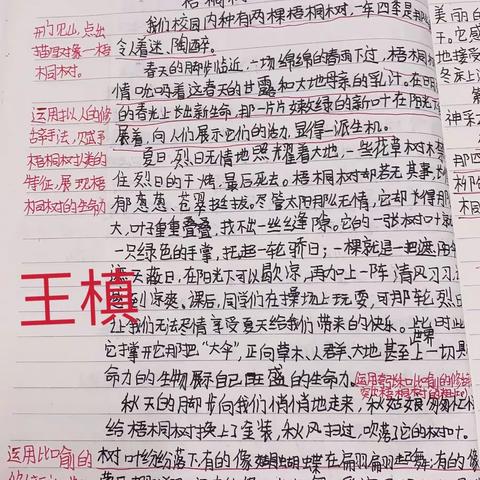 梧桐树
我们校园内种有两棵梧桐树，一年四季是那
令人着迷、陶醉。
春天的脚步临近，一场绵绵的春雨下过，梧桐
情吮吸着这春天的甘露和大地母亲的乳汁。在
的春光上长出新生命，那一片片嫩绿的新叶在阳光下
展着，向人们展示它们的活力，显得一派生机。
夏日，烈日无情地照耀着大地，一些花草树木
住烈日的干烤，最后死去。梧桐树却若无其事，
郁葱葱、苍翠挺拔。尽管太阳那么无情，它却长得那
大，叶子重重叠叠，找不出一丝缝隙。它的一张树叶
一只绿色的手掌，托起一轮骄日；一棵就是一把遮阳
遮天蔽日，在阳光下可以歇凉，再加上一阵清风习习，
感到凉爽。课后，同学们在操场上玩耍，可那轮烈日
让我们无法尽情享受夏天给我们带来的快乐。此时此
世界
它撑开它那把“大伞”，正向草木、人群、大地甚至上一切具
命力的生物展示自己旺盛的生命力。
秋天的脚步向我们悄悄地走来，秋姑娘匆匆忙
给梧桐树换上了金装，秋风扫过，吹落了它的树叶。
树叶纷纷落下，有的像蝴蝶在翩翩起舞；有的像
开门见山，点出
描写对象一梧
桐树。
运用拟人的修
辞手法，赋予
梧桐树人类的
特征，展现梧
桐树的生命力
运用夸张和比喻的修辞
运用比喻的
王槙
美丽的
干。它感
地接受
冬亲上
神采
那四
柳的